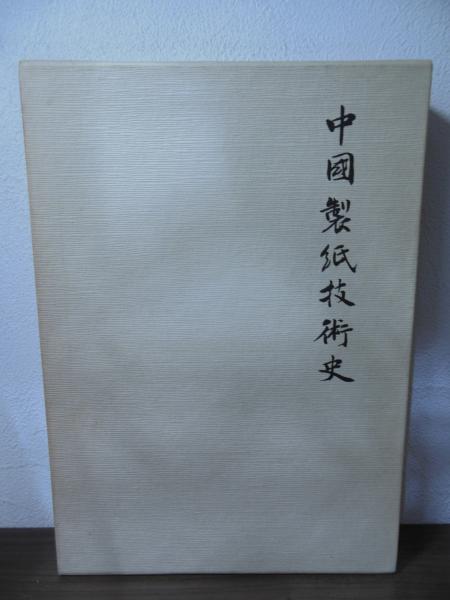 中國製紙技術史